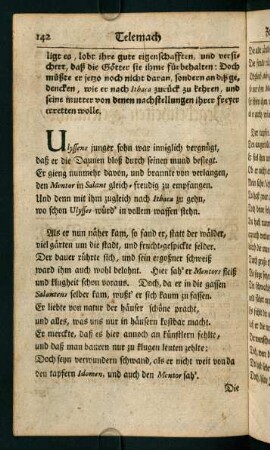 142 Telemach
ligt es, lobt ihre gute eigenschafften, und versi-
chert, daß die Götter sie ihme fürbehalten: Doch
müßte er jetzo noch nicht daran, sondern an diß ge-
dencken, wie er nach Ithaca zurück zu kehren, und
seine mutter von denen nachstellungen ihrer freyer
erretten wolle.
Ulyssens junger sohn war inniglich vergnügt,
daß er die Daunen bloß durch seinen mund besiegt.
Er gieng nunmehr davon, und brannte von verlangen,
den Mentor in Salant gleich-freudig zu empfangen.
Und denn mit ihm zugleich nach Ithaca zu gehn,
wo schon Ulysses würd' in vollem waffen stehn.
Als er nun näher kam, so fand er, statt der wälder,
viel gärten um die stadt, und frucht-gespickte felder.
Der bauer rührte sich, und sein ergoßner schweiß
ward ihm auch wohl belohnt. Hier sah' er Mentors fleiß
und klugheit schon voraus. Doch, da er in die gassen
Salantens selber kam, wußt' er sich kaum zu fassen.
Er liebte von natur der häuser schöne pracht,
und alles, was uns nur in häusern kostbar macht.
Er merckte, daß es hier annoch an künstlern fehlte,
und daß man bauren nur zu klugen leuten zehlte:
Doch seyn verwundern schwand, als er nicht weit von da
den tapfern Idomen, und auch den Mentor sah'.
Die